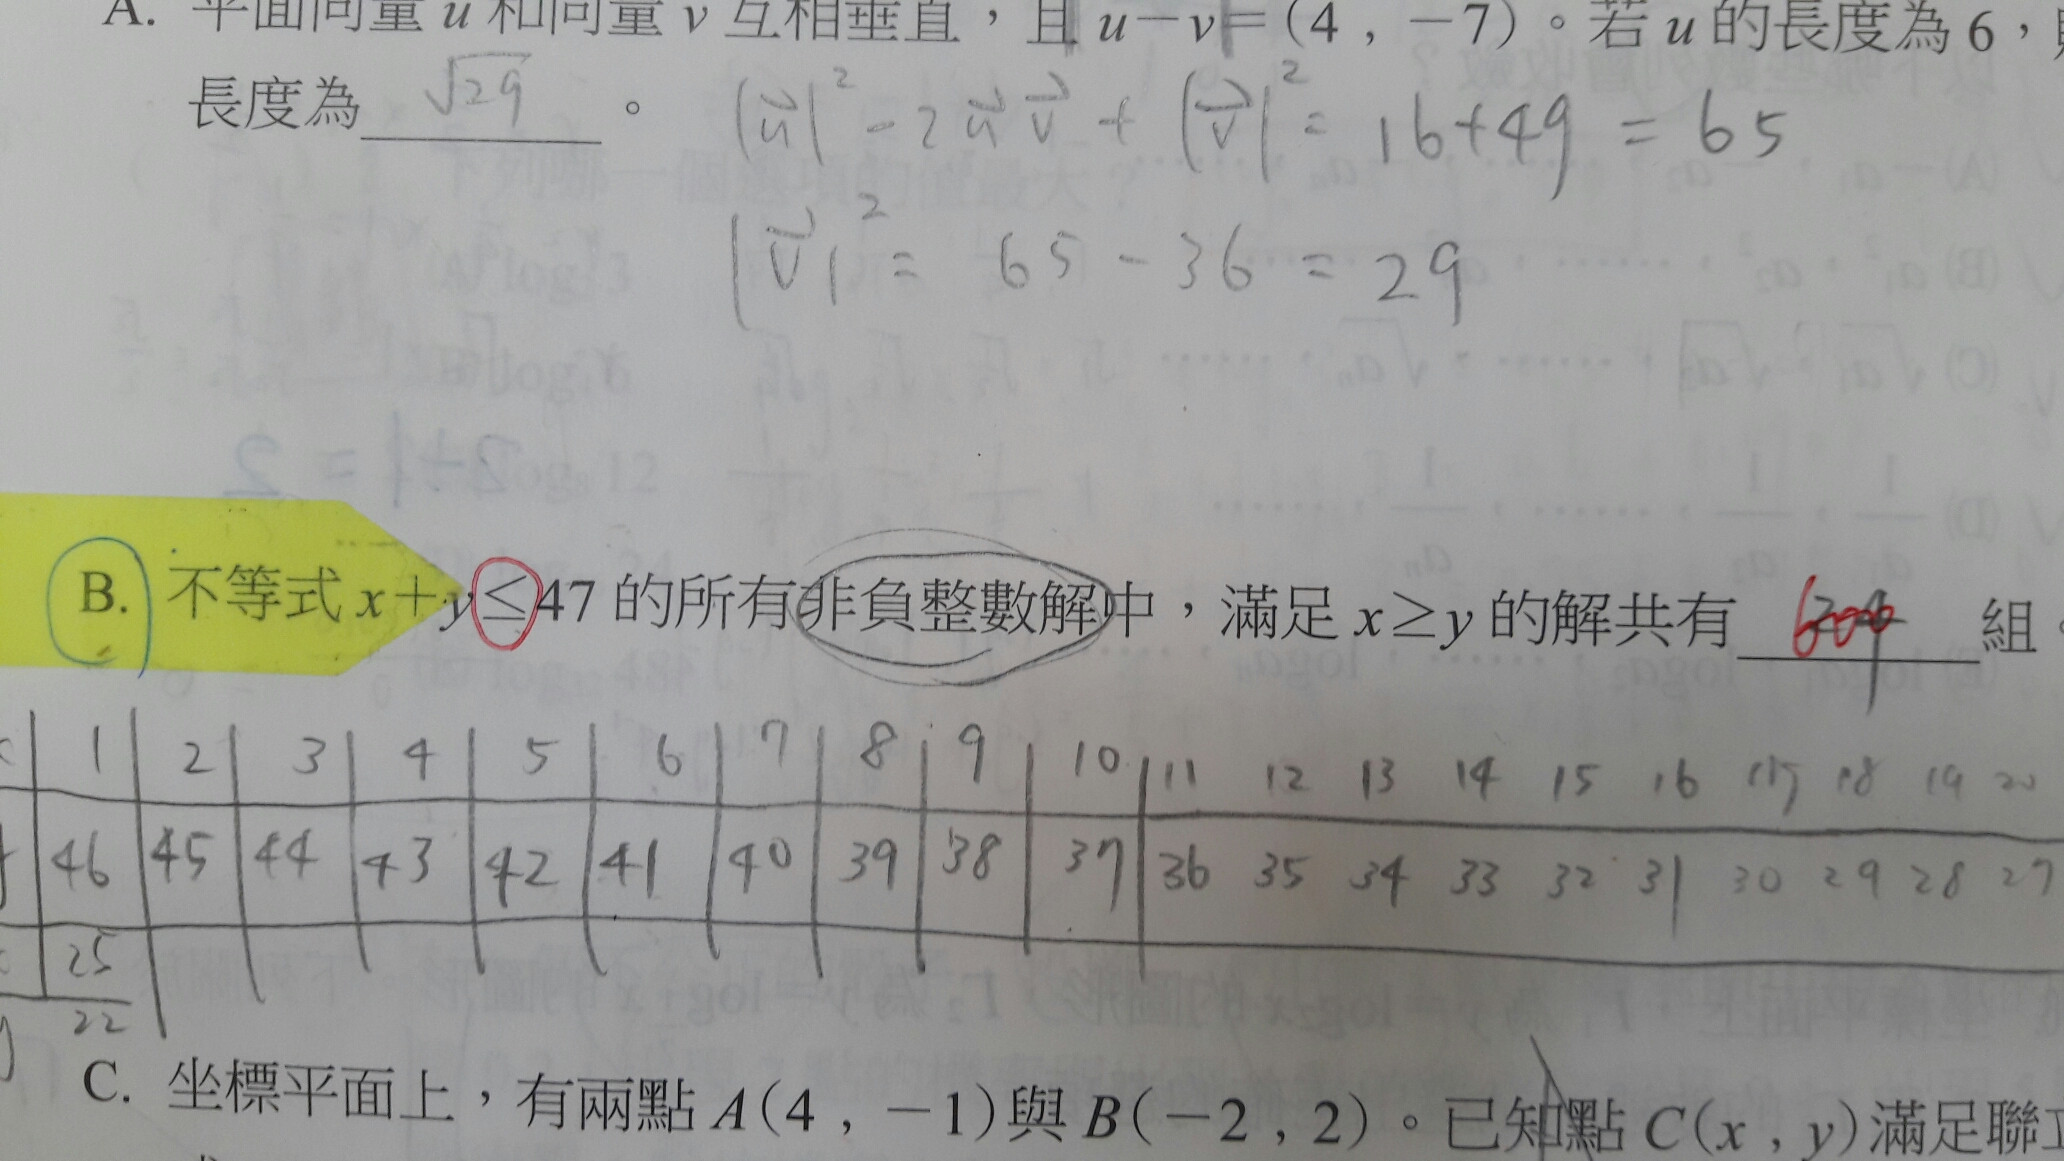 A. 平面向量 u 和向量 v 互相垂直，且 u－v＝(4 , －7)。若 u 的長度為 6，
長度為 √29 。 |u⃗|² - 2u⃗ v⃗ + |v⃗|² = 16+49 = 65
|v⃗|² = 65 - 36 = 29
B. 不等式 x＋y≤47 的所有非負整數解中，滿足 x≥y 的解共有 600 組。
1 2 3 4 5 6 7 8 9 10 11 12 13 14 15 16 17 18 19 20
46 45 44 43 42 41 40 39 38 37 36 35 34 33 32 31 30 29 28 27
25
y 22
C. 坐標平面上，有兩點 A(4 , －1)與 B(－2 , 2)。已知點 C(x , y)滿足聯立